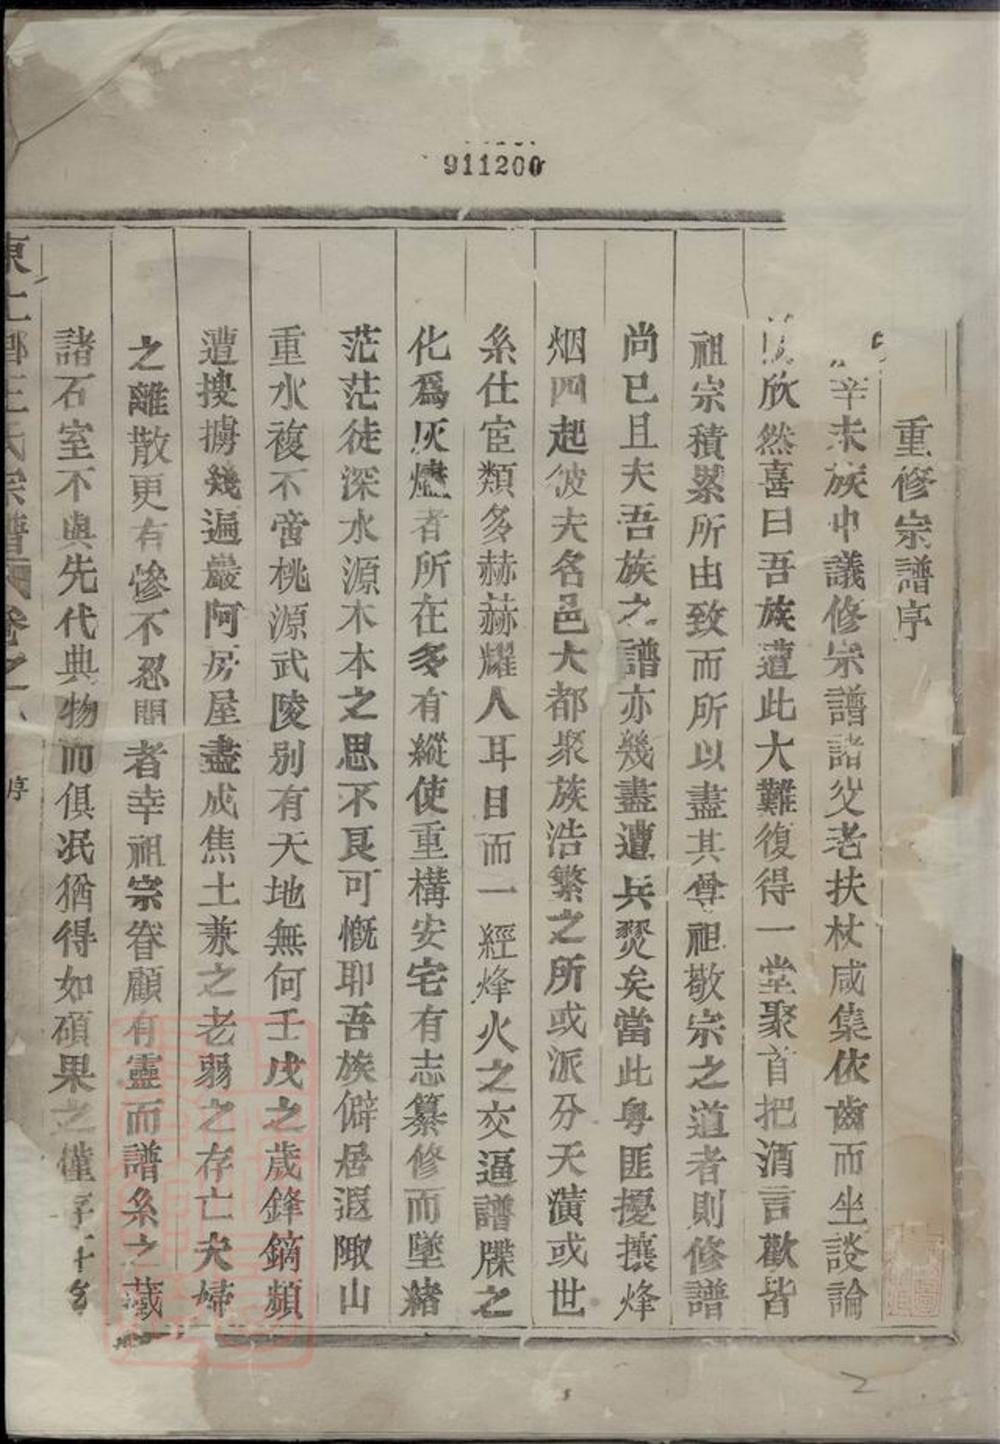 911200
重修宗譜序
辛未族中議修宗譜諸父老扶杖咸集依齒而坐談論
欣然喜曰吾族遭此大難復得一堂聚首把酒言歡皆
祖宗積累所由致而所以盡其尊祖敬宗之道者則修譜
尚已且夫吾族之譜亦幾盡遭兵燹矣當此粵匪擾攘烽
烟四起彼夫名邑大都聚族浩繁之所或派分天潢或世
系仕宦類多赫赫耀人耳目而一經烽火之交逼譜牒之
化爲灰燼者所在多有縱使重構安宅有志纂修而墜緒
茫茫徒深水源木本之思不良可慨耶吾族僻居遐陬山
重水複不啻桃源武陵别有天地無何壬戌之歲鋒鏑頻
遭搜擄幾遍巖阿房屋盡成焦土兼之老弱之存亡夫婦
之離散更有慘不忍聞者幸祖宗眷顧有靈而譜系之藏
諸石室不與先代典物而俱泯猶得如碩果之僅存
東上鄉王氏宗譜 卷之 序
2